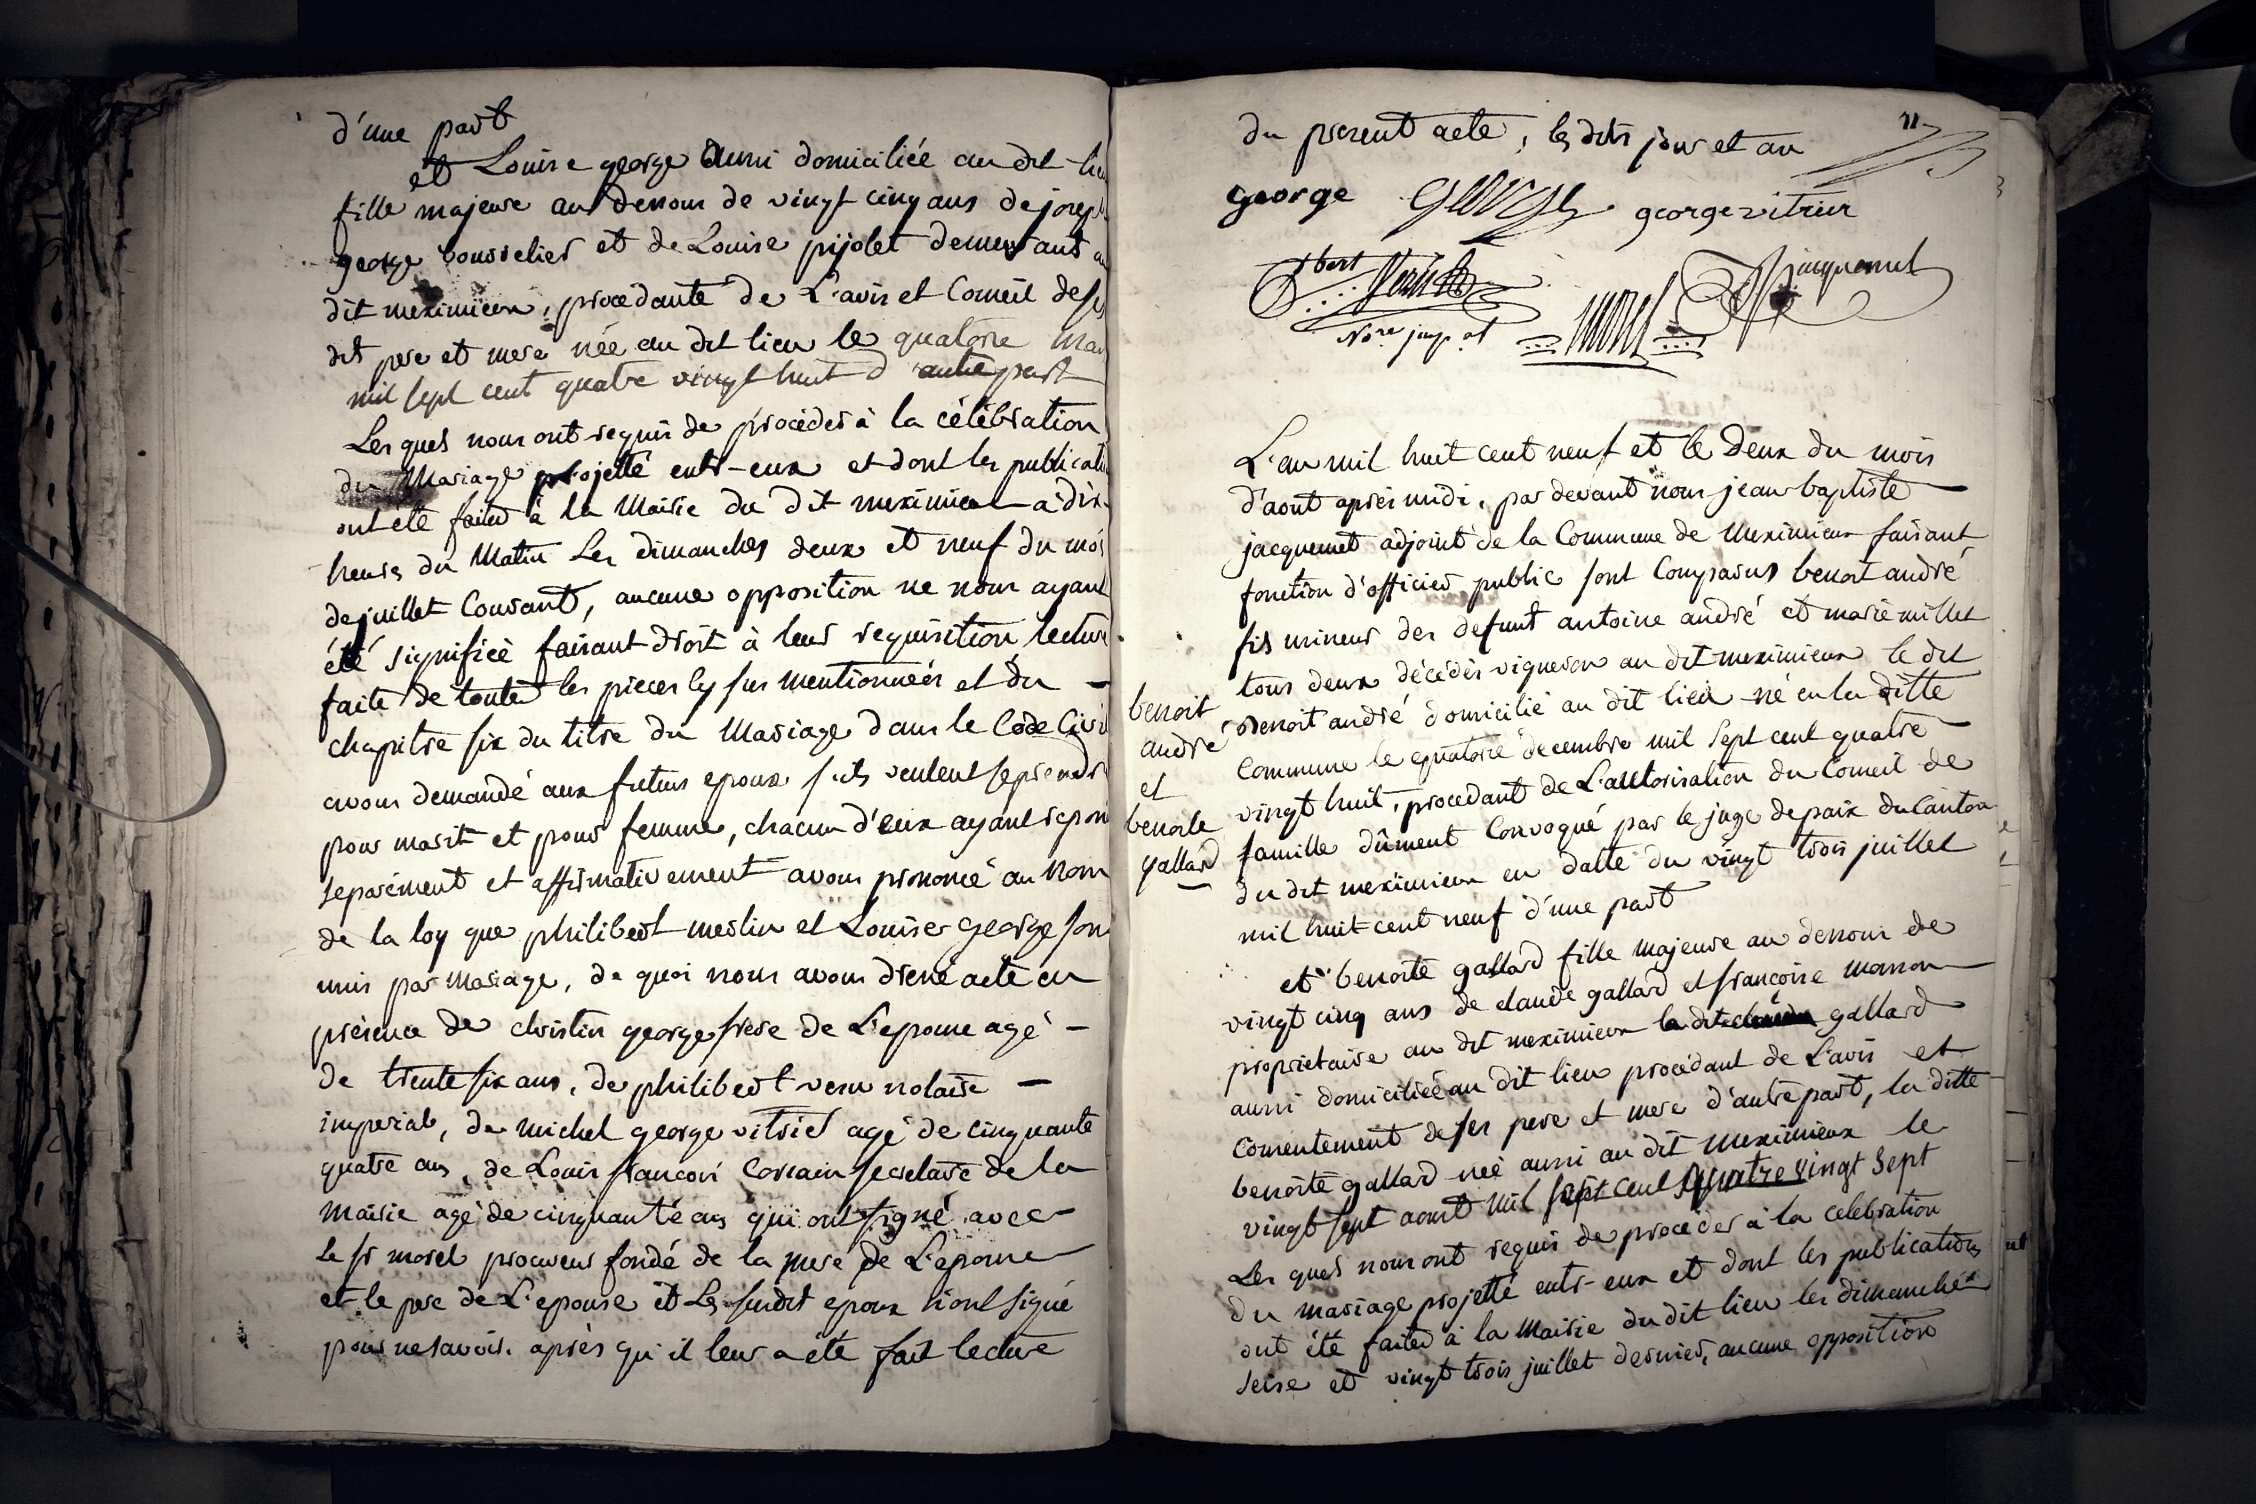 d'une part
et Louise george aussi domiciliée au dit lieu
fille majeure au dessous de vingt cinq ans de joseph
george bourrelier et de Louise pijolet demeurant au
dit meximieux, procedante de L'avis et Conseil de ses
dits pere et mere née au dit lieu le quatorze mars
mil sept cent quatre vingt huit d'autre part
Les quels nous ont requis de procéder à la célébration
du Mariage projetté entr-eux et dont les publications
ont été faites à la Mairie du dit meximieux a dix
heures du Matin Les dimanches deux et neuf du mois
de juillet Courant, aucune opposition ne nous ayant
été signifiée faisant droit à leur requisition, lecture
faite de toutes les pieces cy sus mentionnées et du -
chapitre six du titre du Mariage dans le Code Civil
avons demandé aux futurs epoux s'ils veulent se prendre
pour marit et pour femme, chacun d'eux ayant repondu
separément et affirmativement avons prononcé au Nom
de la loy que philibert merlin et Louise George sont
unis par Mariage, de quoi nous avons dressé acte en
présence de christin george frere de L'epouse agé -
de trente six ans, de philibert venu notaire -
imperial, de michel george vitrier agé de cinquante
quatre ans, de Louis françois secretaire de la
mairie agé de cinquante ans qui ont signé avec
Le sr morel procureur fondé de la mere de L'epouse
et le pere de L'epouse et Les susdit epoux n'ont signé
pour ne savoir. après qu'il leur a été fait lecture
du present acte, les dits jour et an
11
george george george vitrier
morel Jacquemet
Nore imp al
L'an mil huit cent neuf et le Deux du mois
d'aout après midi, par devant nous jean baptiste
jacquemet adjoint de la Commune de Meximieux faisant
fonction d'officier public sont Comparus benoit andré
fils mineur des defunt antoine andré et marie millet
tous deux décédés vigneron au dit meximieux le dit
benoit andré domicilié au dit lieu né en la ditte
Commune le quatorze decembre mil sept cent quatre
vingt huit, procedant de L'autorisation du Conseil de
famille dûment Convoqué par le juge de paix du Canton
du dit meximieux en datte du vingt trois juillet
mil huit cent neuf d'une part
benoit
andré
et
benoite
gallard
et benoite gallard fille majeure au dessous de
vingt cinq ans de claude gallard et françoise
proprietaire au dit meximieux la dite gallard
aussi domiciliée au dit lieu procédant de L'avis et
Consentement de ses pere et mere d'autre part, la ditte
benoite gallard née aussi au dit meximieux le
vingt sept aout mil sept cent quatre vingt sept
Les quels nous ont requis de proceder à la celebration
du mariage projetté entr-eux et dont les publications
ont été faites à la Mairie du dit lieu les dimanches
seize et vingt trois juillet dernier, aucune opposition